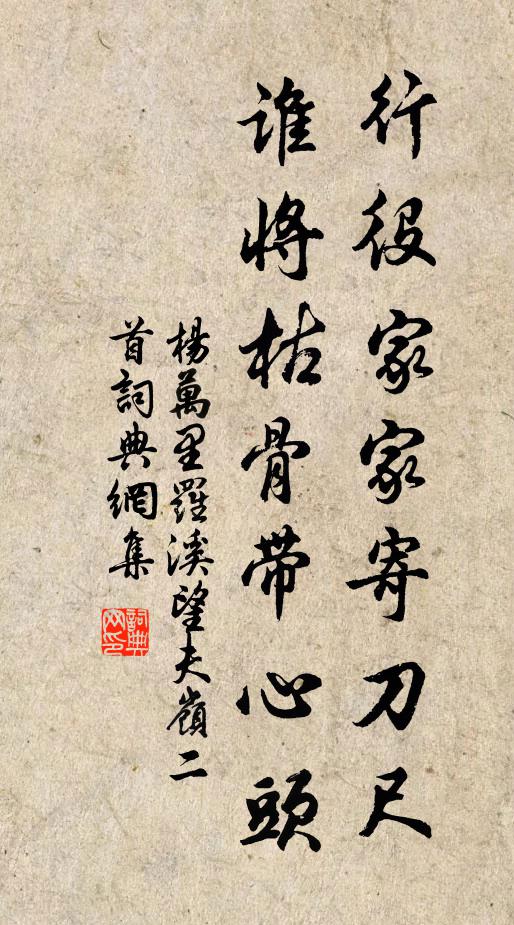 行役家家寄刀尺
谁將枯骨帶心頭
楊萬里羅溪望夫嶺二
首詞典網集
詞典
网印